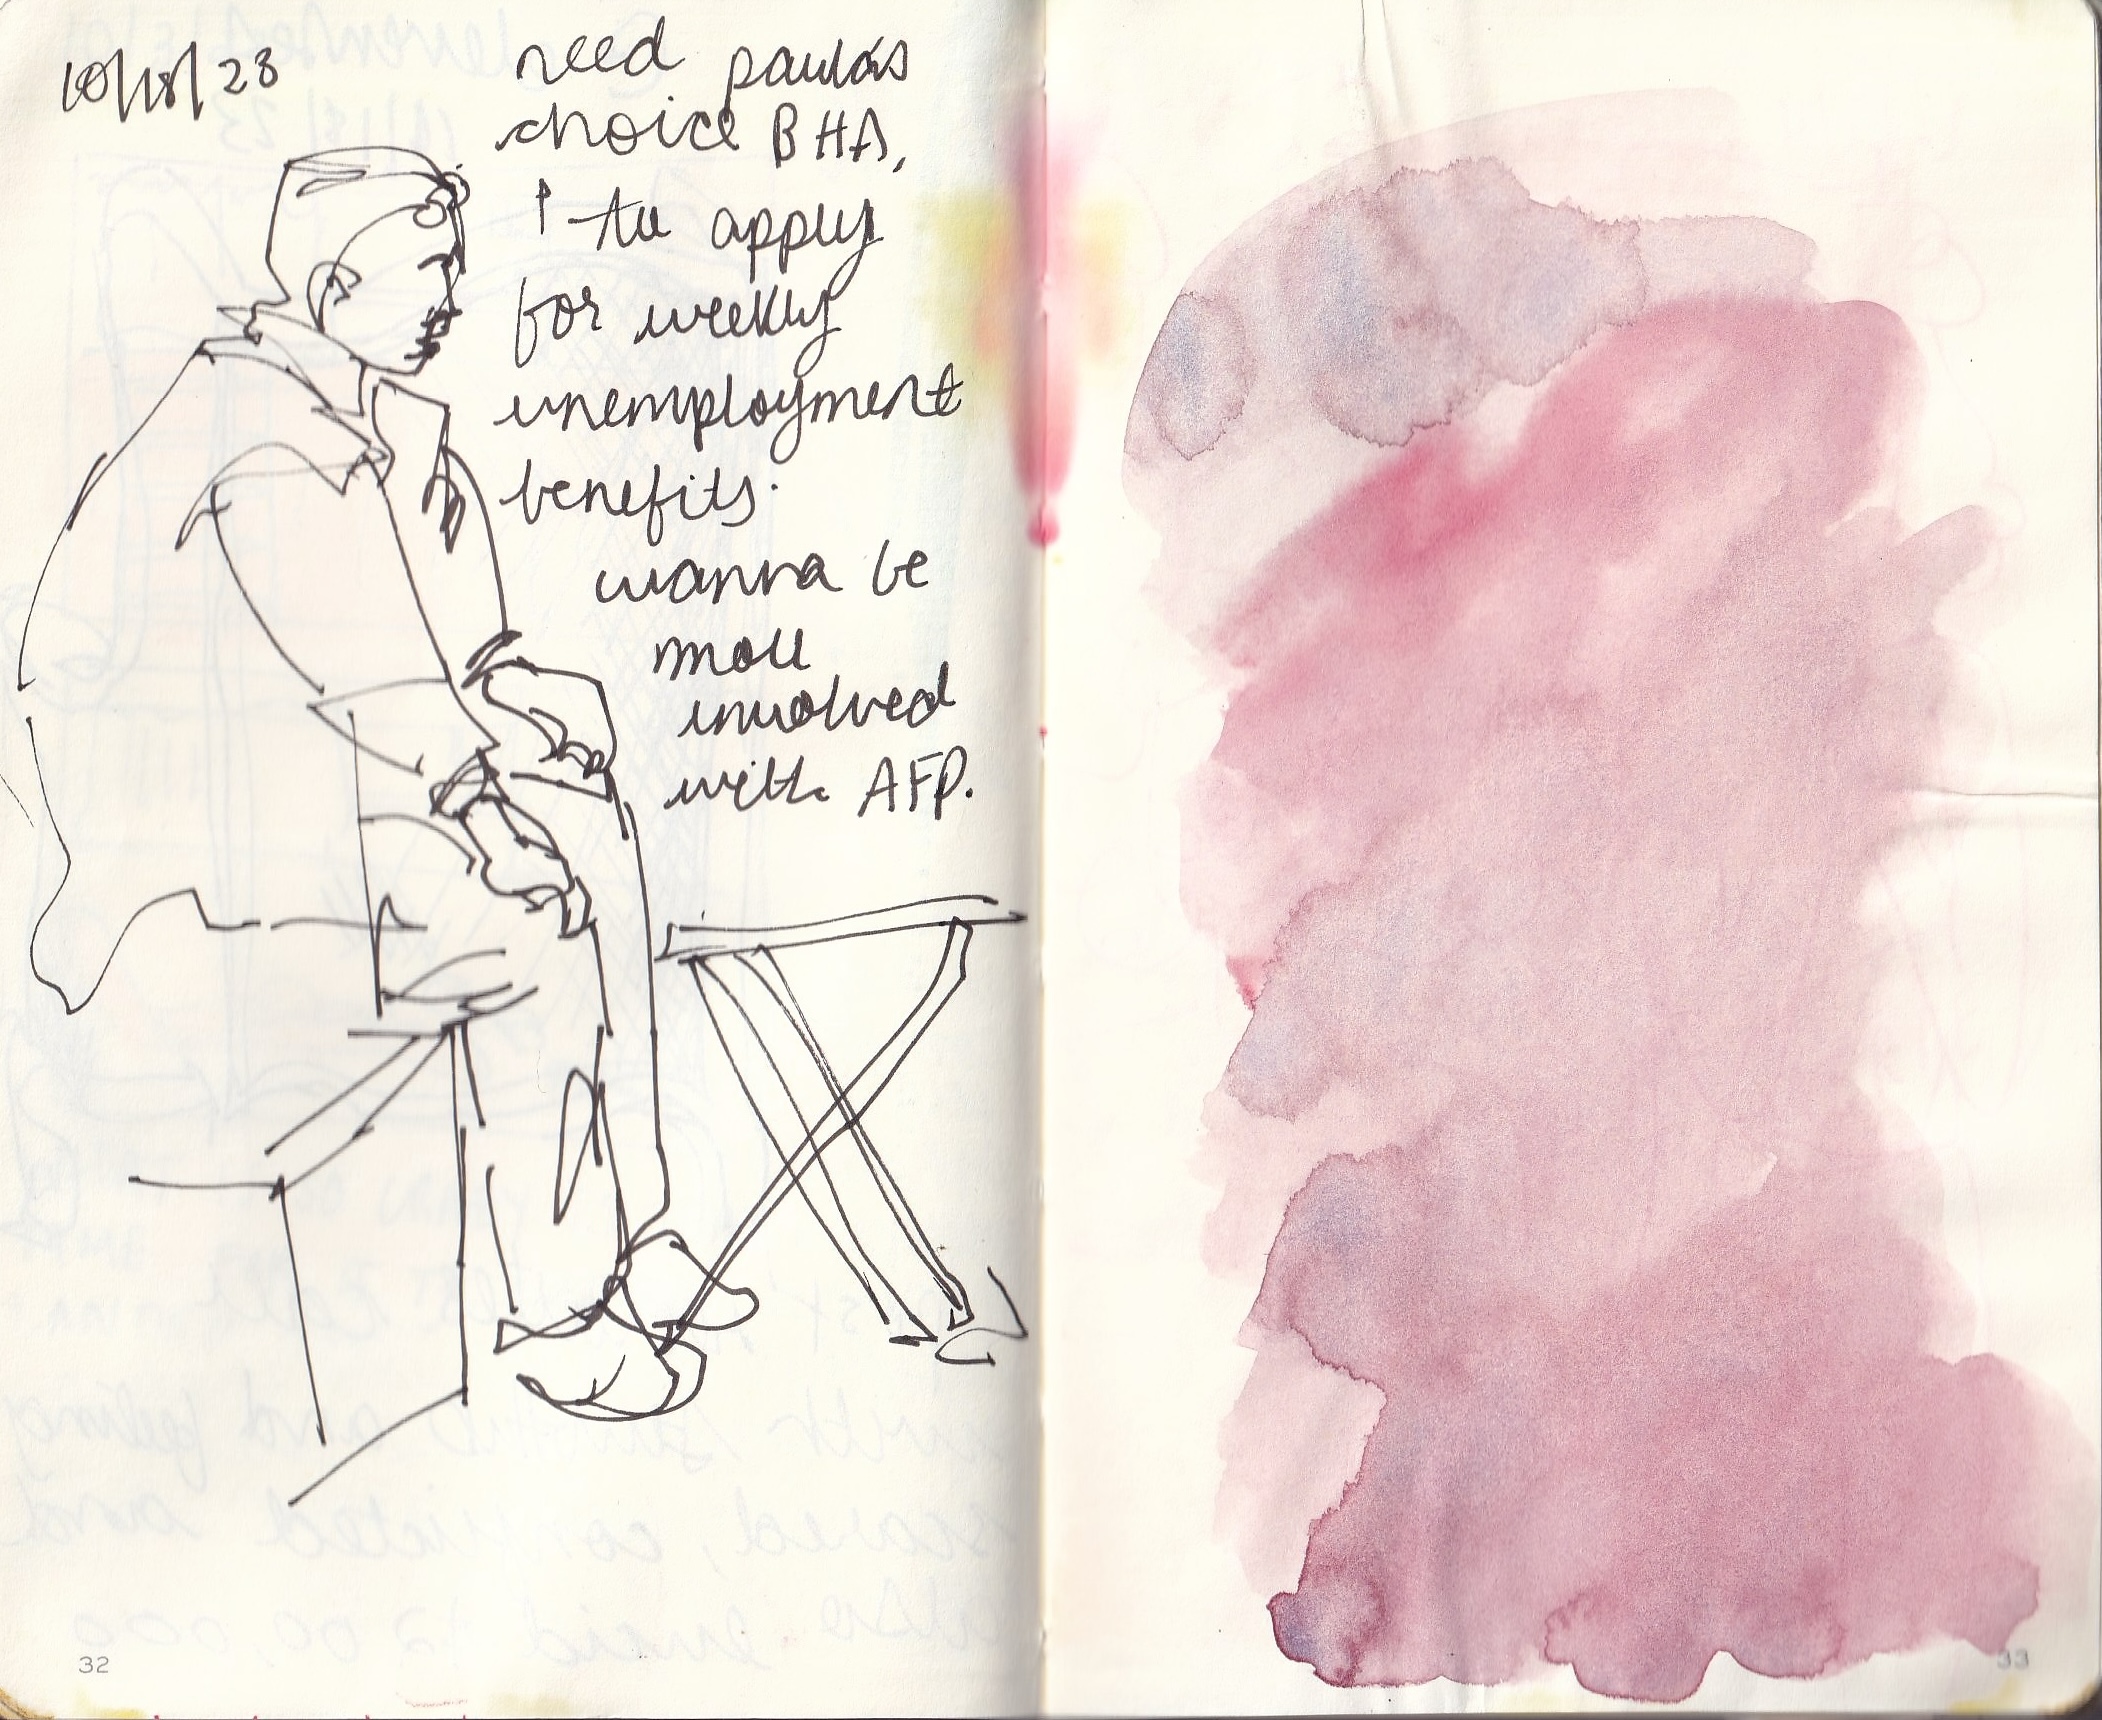 10/18/23
need paula's
choice BHA,
to apply
for weekly
unemployment
benefits.
wanna be
more
involved
with AFP.
32
33